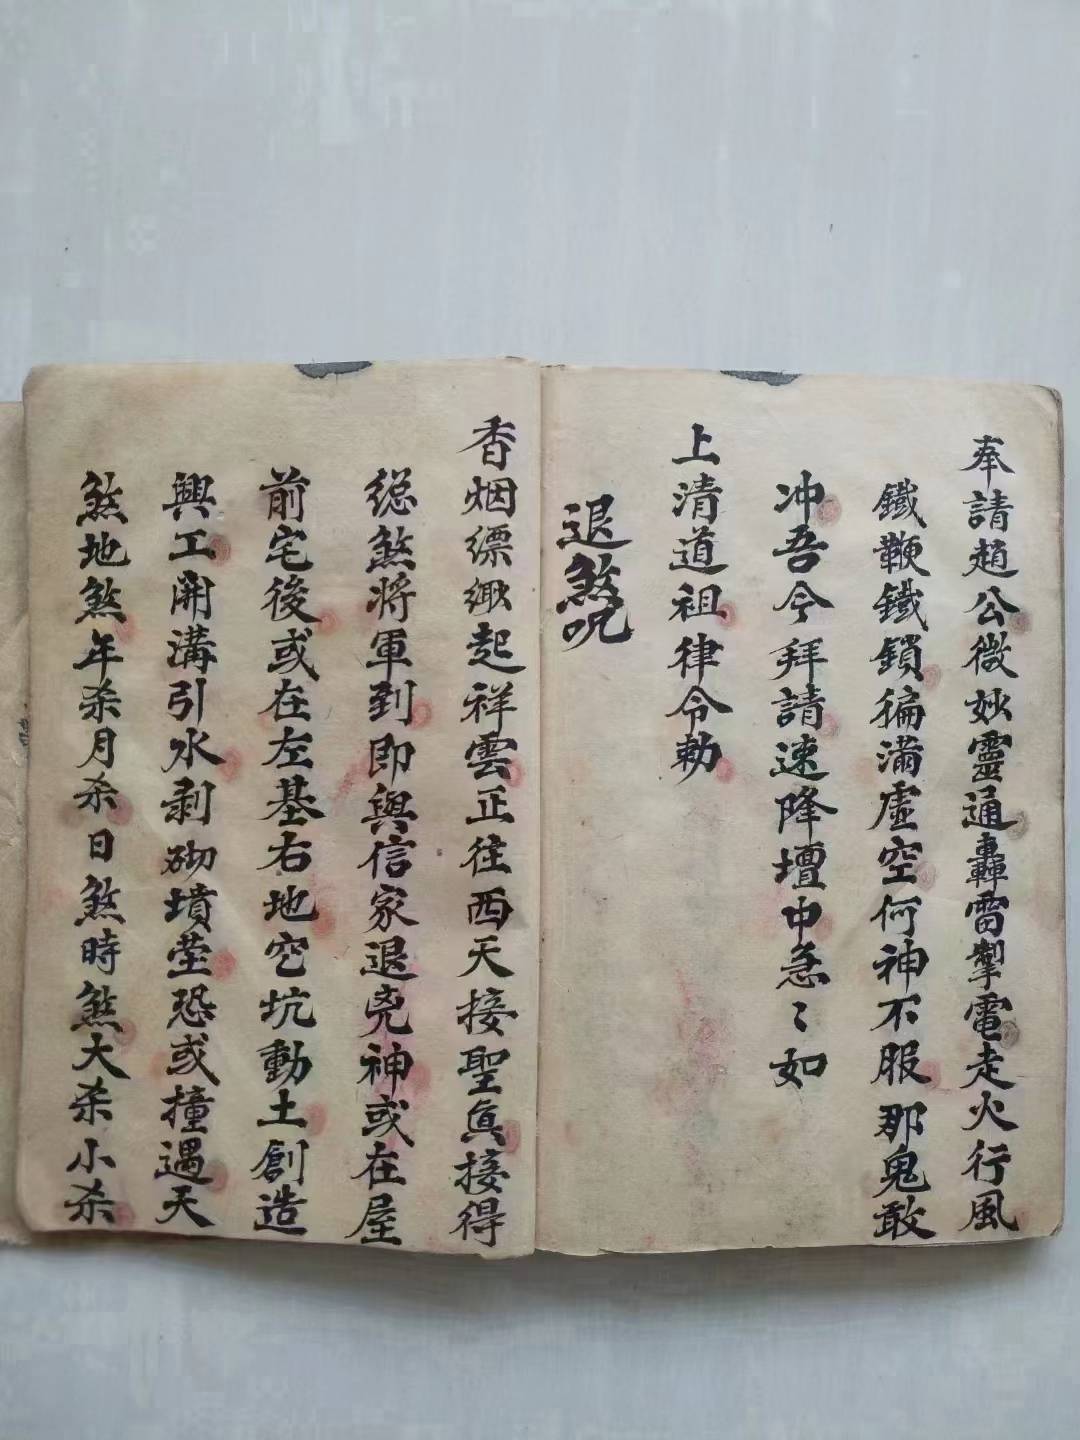 奉請趙公微妙靈通轟雷掣電走火行風
鐵鞭鐵鎖徧滿虛空何神不服那鬼敢
冲吾今拜請速降壇中急〻如
上清道祖律令勅
退煞咒
香烟縹緲起祥雲正往西天接聖真接得
総煞將軍到即與信家退兇神或在屋
前宅後或在左基右地空坑動土創造
興工開溝引水剥砌墳茔恐或撞遇天
煞地煞年杀月杀日煞時煞大杀小杀